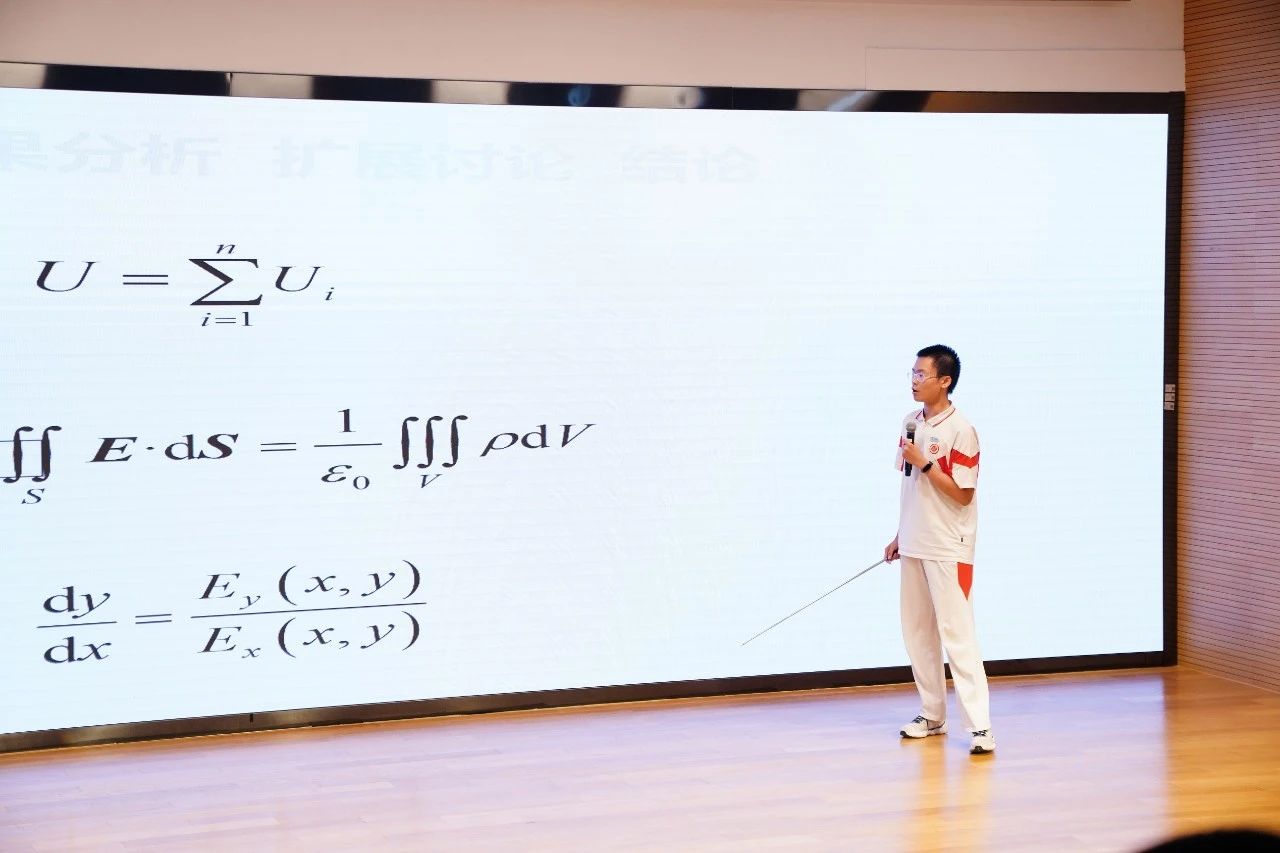 果分析 扩展讨论 结论
U = \sum_{i=1}^{n} U_i
\oiint_S E·dS = \frac{1}{ε_0} \iiint_V ρdV
\frac{dy}{dx} = \frac{E_y(x, y)}{E_x(x, y)}